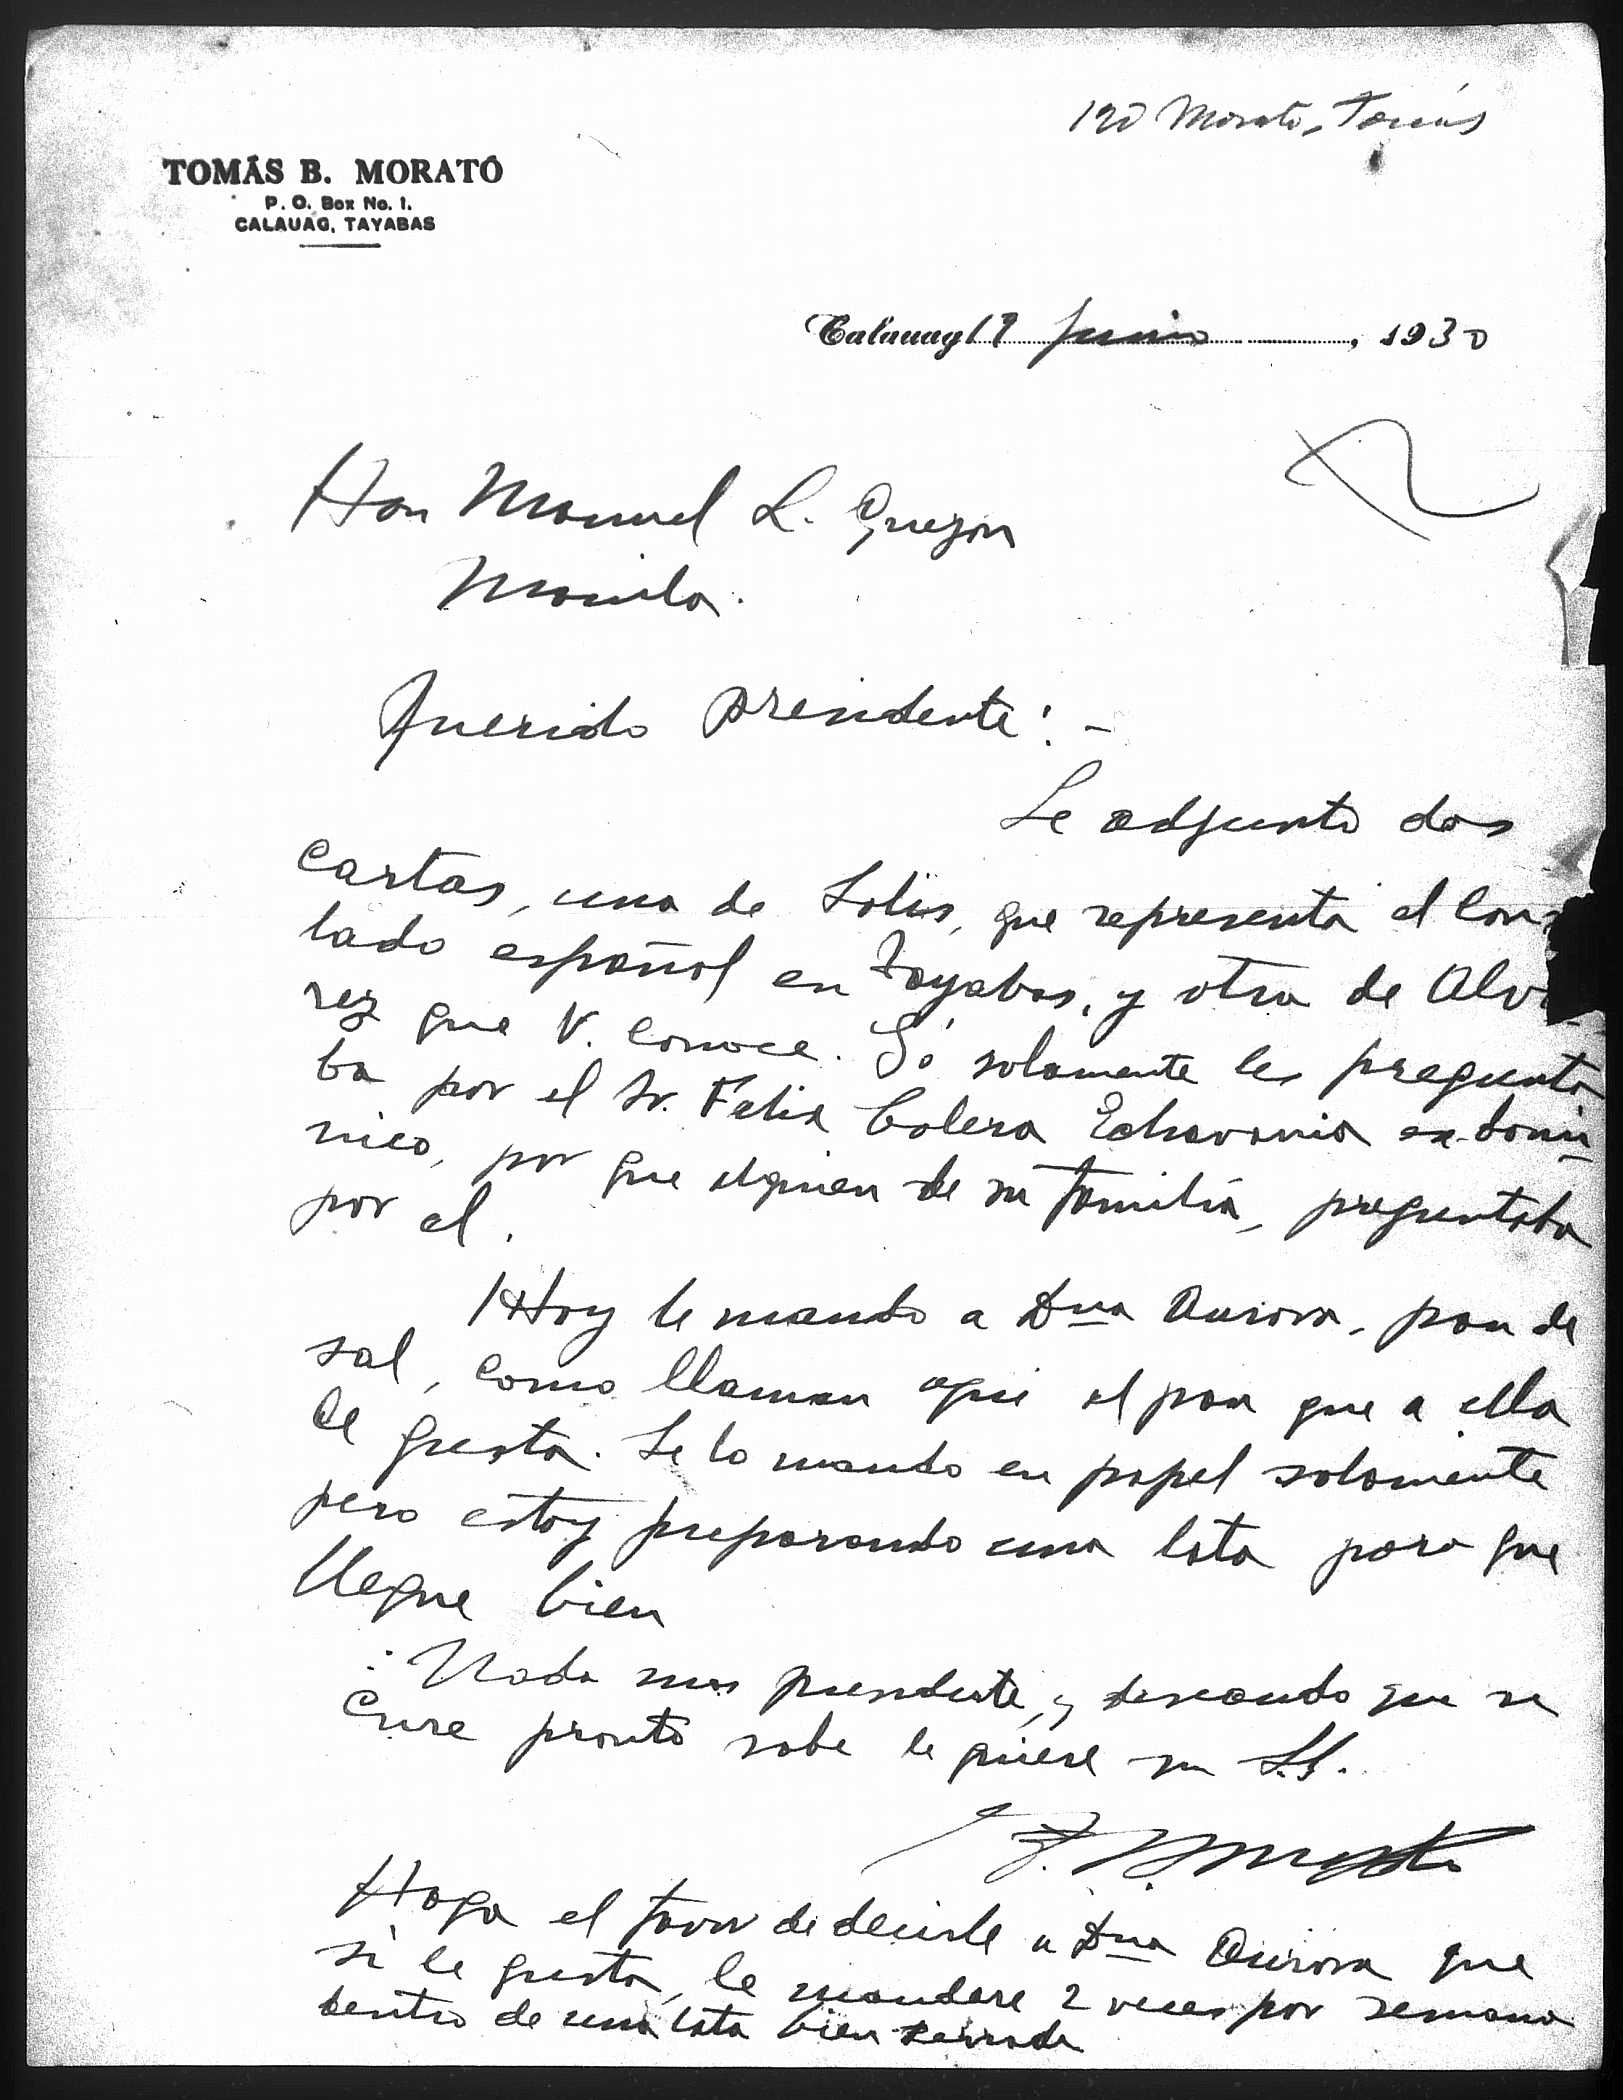 190 Morato, Tomás
TOMÁS B. MORATÓ
P. O. Box No. 1.
CALAUAG, TAYABAS
Calauag 19 Junio, 1930
Hon Manuel L. Quezon
Manila.
Querido presidente: -
Le adjunto dos
cartas, una de Solis, que representa el Con
lado español en Tayabas, y otra de Alv
rez que V. conoce. Yó solamente les pregunta
ba por el Sr. Felix Colera Echavarria ex-domi
nico, por que alguien de su familia, preguntaba
por el.
Hoy le mando a Dna Aurora, pan de
sal, como llaman aqui el pan que a ella
le gusta. Se lo mando en papel solamente
pero estoy preparando una lata para que
llegue bien
Nada mas presidente, y deseando que se
cure pronto sabe le quiere su S.S.
T. B. Morato
Haga el favor de decirle a Dna Aurora que
si le gusta, le mandare 2 veces por semana
dentro de una lata bien serrada